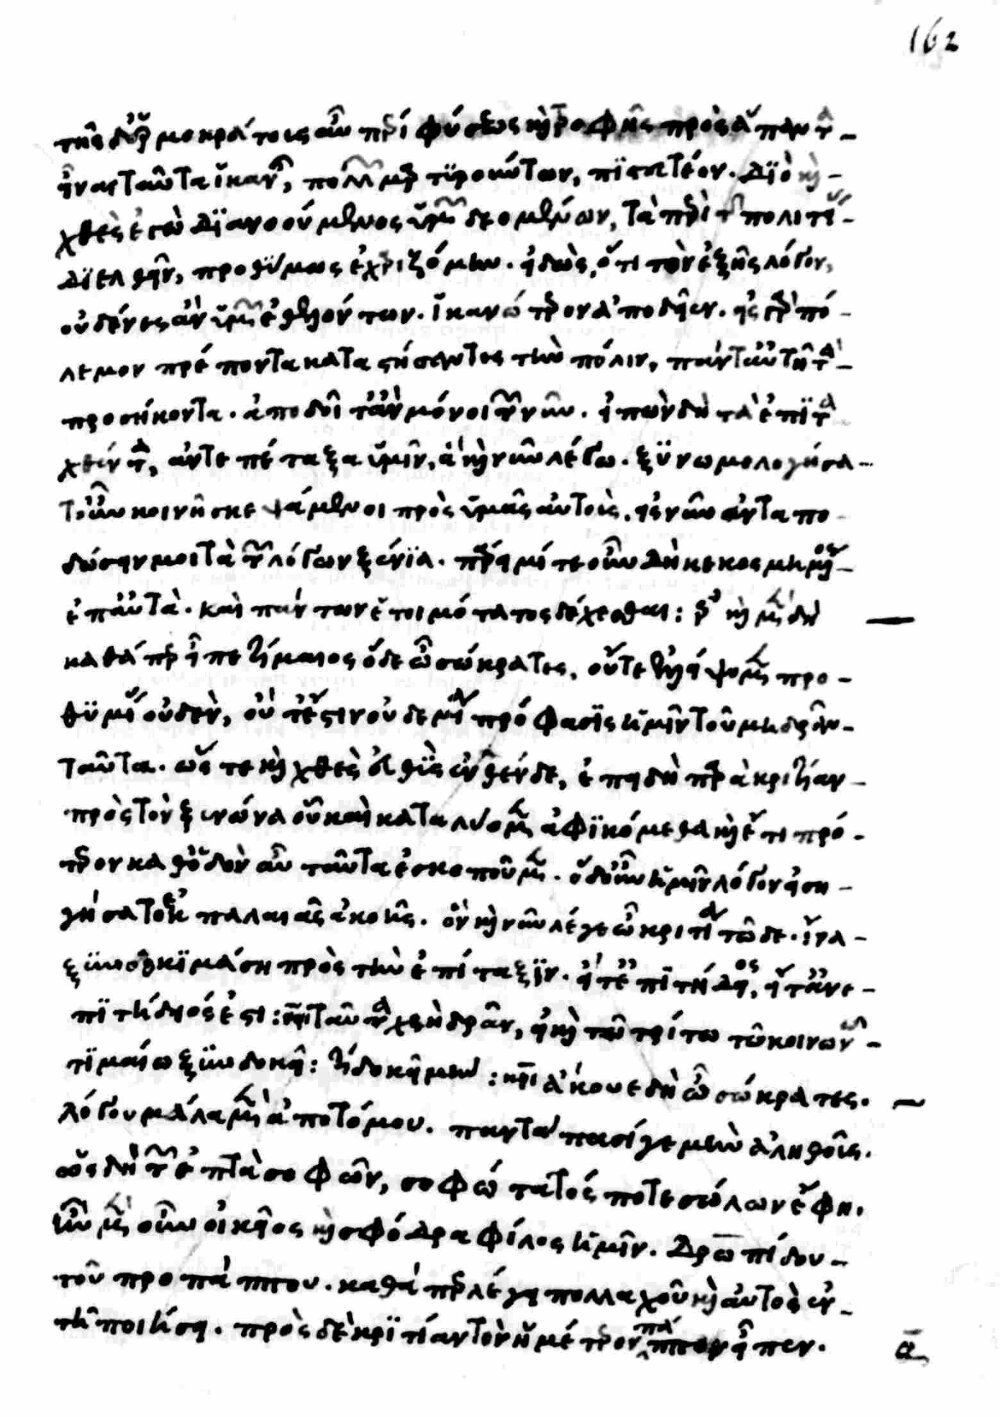 162
τῆς δ' ἑρμοκράτους αὖ περὶ φύσεως καὶ τροφῆς πρὸς ἅπαντ
εἶναι ταῦτα ἱκανὴν, πολλῶν μαρτυρούντων, πιστευτέον. διὸ καὶ
χθὲς ἐγὼ διανοούμενος ὑμῶν δεομένων, τὰ περὶ τῆς πολιτείας
διελθεῖν, προθύμως ἐχαριζόμην. εἰδὼς, ὅτι τὸν ἑξῆς λόγον,
οὐδένες ἂν ὑμῶν ἐθελόντων. ἱκανώτερον ἀποδοῖεν. εἰς γὰρ πό
λεμον πρέποντα καταστήσαντες τὴν πόλιν, πάντ' αὐτῇ τὰ
προσήκοντα. ἀποδοῖτ' ἂν μόνοι τῶν νῦν. εἰπὼν δὴ τὰ ἐπιτα
χθέντα, ἀντεπέταξα ὑμῖν, ἃ καὶ νῦν λέγω. ξυνωμολογήσα
τ' οὖν κοινῇ σκεψάμενοι πρὸς ὑμᾶς αὐτοὺς. εἰς νῦν ἀνταπο
δώσειν μοι τὰ τῶν λόγων ξένια. πάρειμί τε οὖν δὴ κεκοσμημένος
ἐπ' αὐτὰ. καὶ πάντων ἑτοιμότατος δέχεσθαι: ἑρ καὶ μὲν δὴ
καθάπερ εἶπε τίμαιος ὅδε ὦ σώκρατες, οὔτε ἐλλείψομεν προ
θυμίας οὐδὲν, οὔτ' ἔστιν οὐδεμία πρόφασις ἡμῖν τοῦ μὴ δρᾶν
ταῦτα. ὥστε καὶ χθὲς εὐθὺς ἐνθένδε, ἐπειδὴ παρὰ κριτίαν
πρὸς τὸν ξενῶνα οὗ καὶ καταλύομεν ἀφικόμεθα καὶ ἔτι πρό
τερον καθ' ὁδὸν αὖ ταῦτα ἐσκοποῦμεν. ὅδ' οὖν ἡμῖν λόγον εἰση
γήσατο ἐκ παλαιᾶς ἀκοῆς. ὃν καὶ νῦν λέγε ὦ κριτία τῷδε. ἵνα
ξυνδοκιμάσῃ πρὸς τὴν ἐπίταξιν. εἴτ' ἐπιτήδειος, εἴτ' ἀνε
πιτήδειός ἐστι: κρι ταῦτα χρὴ δρᾶν, εἰ καὶ τῷ τρίτῳ τῷ κοινωνῷ
τιμαίῳ ξυνδοκεῖ: τι δοκεῖ μὴν: κρι ἄκουε δὴ ὦ σώκρατες.
λόγου μάλα μὲν ἀτόπου. παντάπασί γε μὴν ἀληθοῦς.
ὡς δὴ τῶν ἑπτὰ σοφῶν, σοφώτατός ποτε σόλων ἔφη.
ἦν μὲν οὖν οἰκεῖος καὶ σφόδρα φίλος ἡμῖν. δρωπίδου
τοῦ προπάππου. καθάπερ λέγει πολλαχοῦ καὶ αὐτὸς ἐν
τῇ ποιήσει. πρὸς δὲ κριτίαν τὸν ἡμέτερον πάππον εἶπεν.